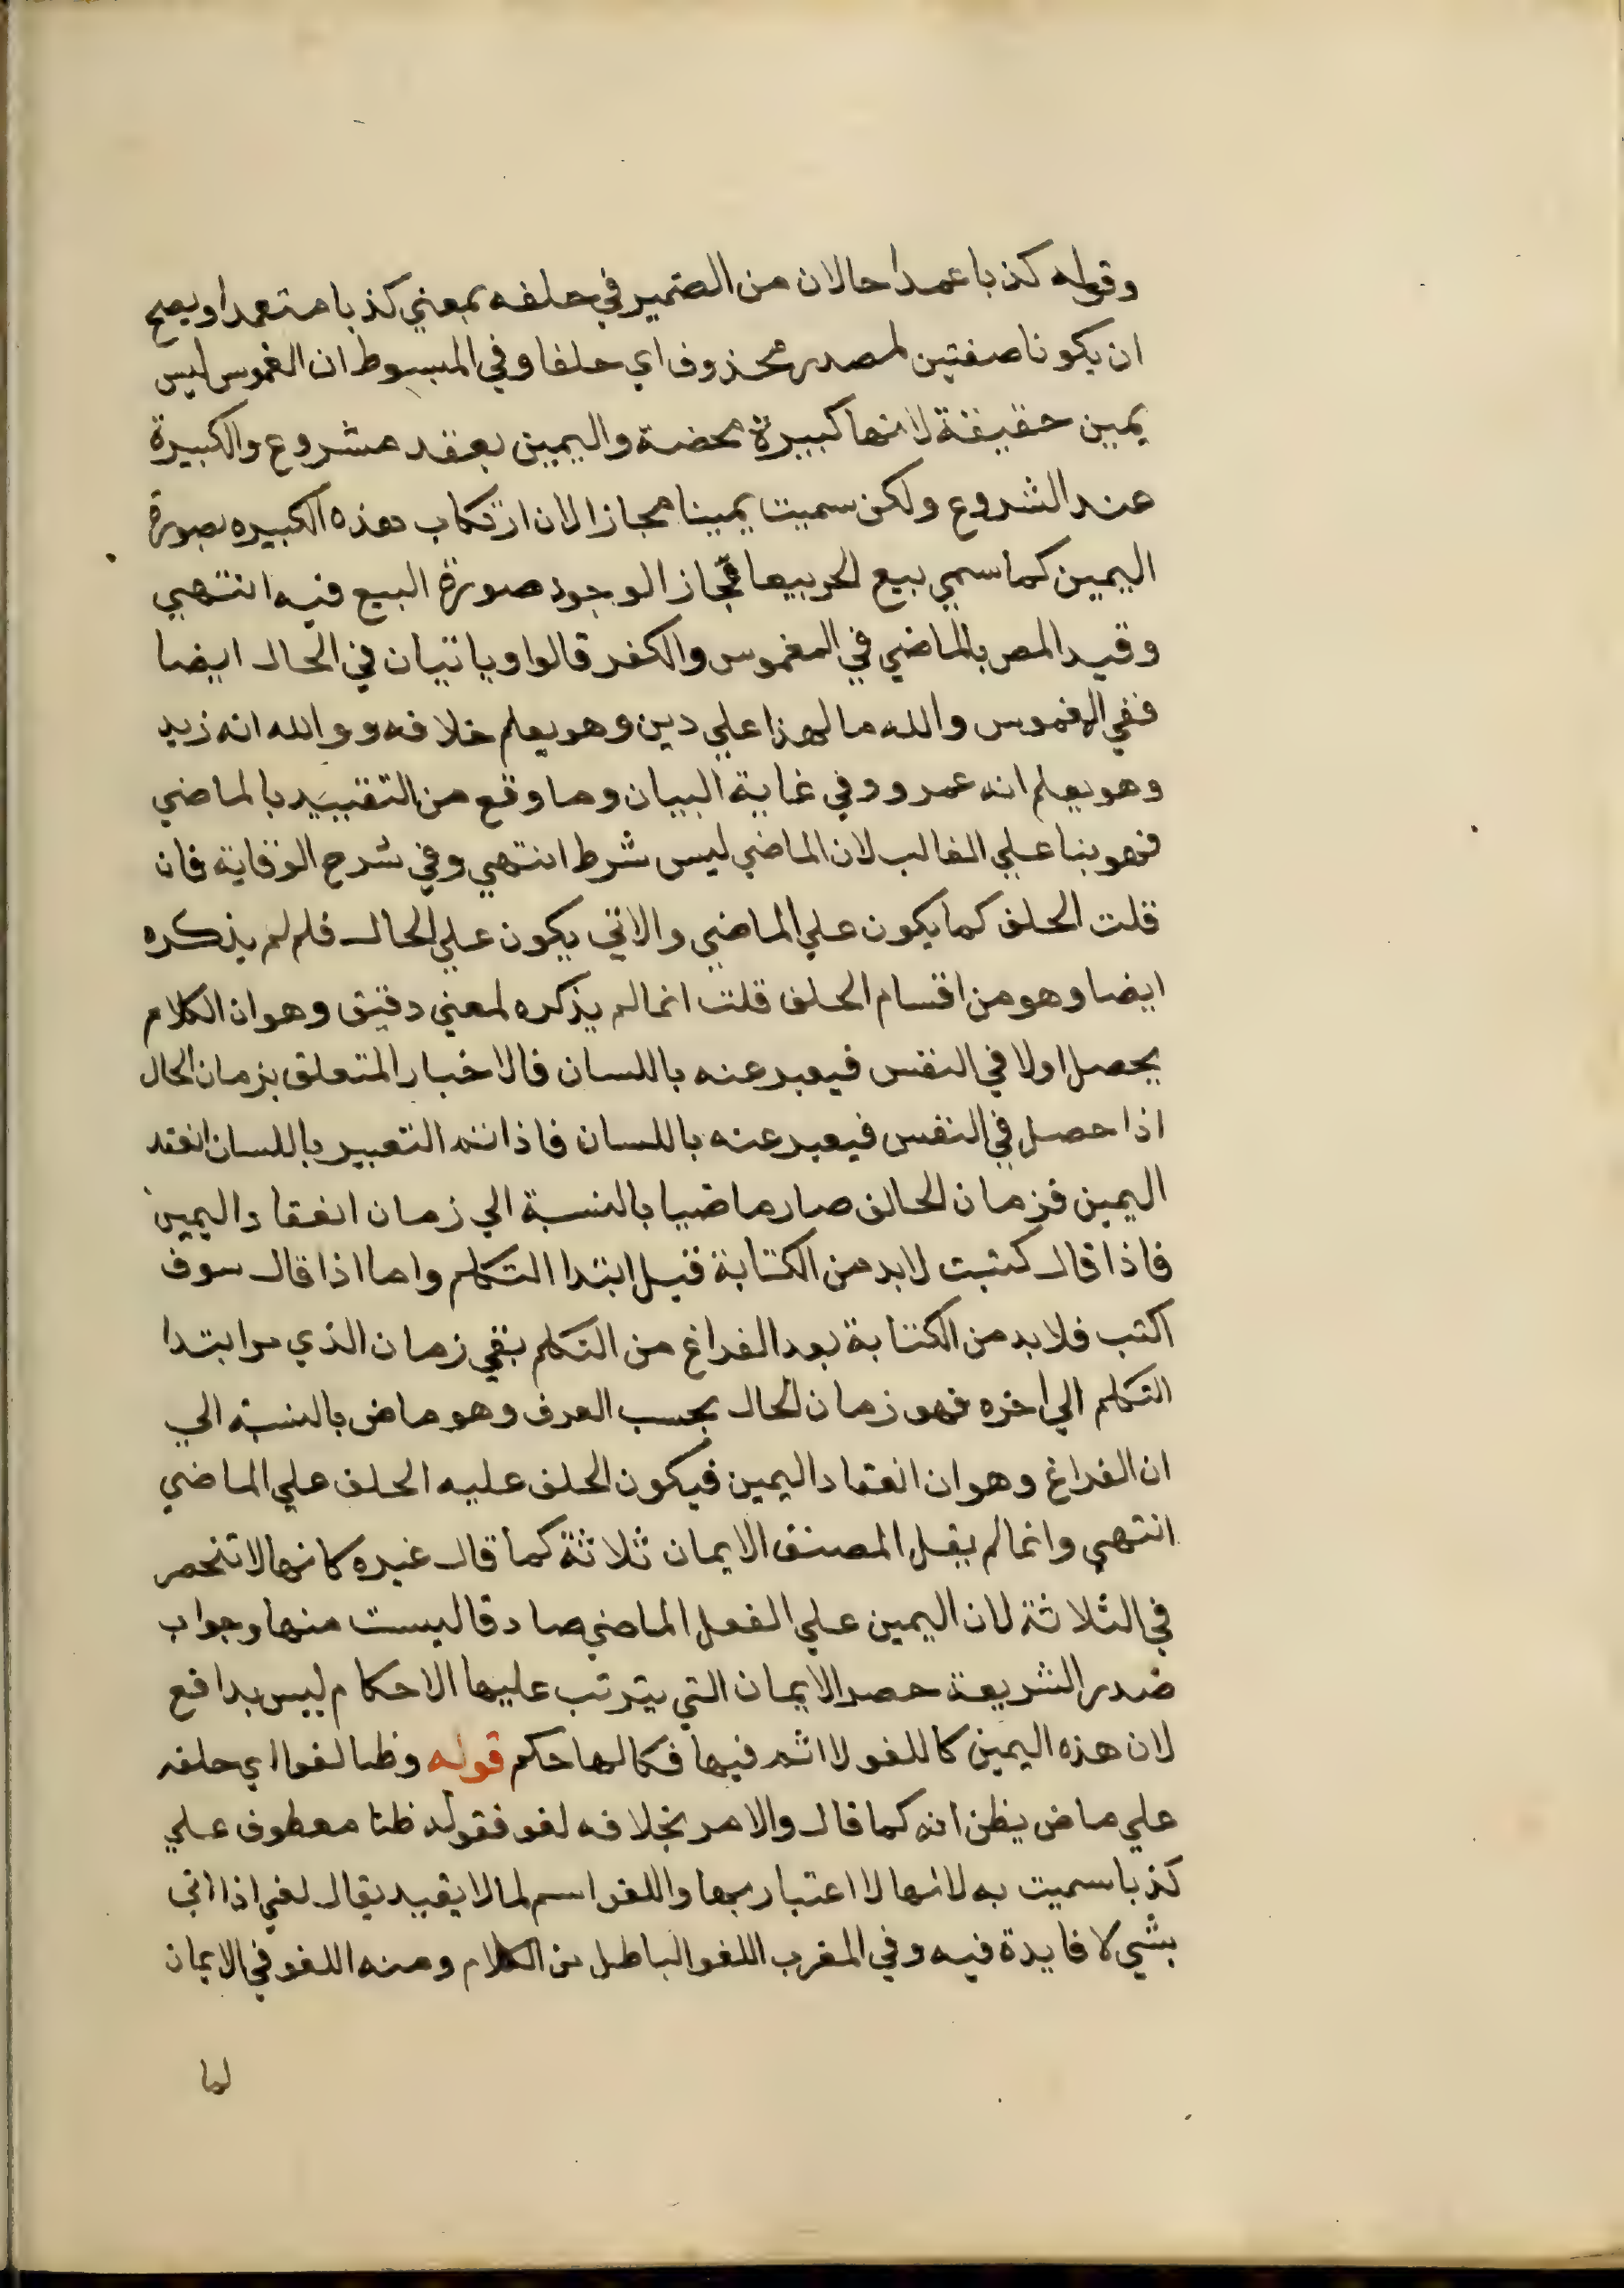 وقوله كذبا عمدا حالان من الضمير في حلفه بمعني كذبا متعمدا ويصح
ان يكونا صفتين لمصدر محذوف اي حلفا وفي المبسوط ان الغموس ليس
يمين حقيقة لانها كبيرة محضة واليمين بعقد مشروع والكبيرة
عند الشروع ولكن سميت يمينا مجازا لان ارتكاب هذه الكبيره بصورة
اليمين كما سمي بيع الحر بيعا مجاز الوجود صورة البيع فيه انتهي
وقيد المص بالماضي في الغموس والكفر قالوا وياتيان في الحال ايضا
ففي الغموس والله ما لهذا علي دين وهو يعلم خلافه ووالله انه زيد
وهو يعلم انه عمرو وفي غاية البيان وما وقع من التقييد بالماضي
فهو بنا علي الغالب لان الماضي ليس شرط انتهي وفي شرح الوقاية فان
قلت الحلف كما يكون علي الماضي والاتي يكون علي الحال فلم لم يذكره
ايضا وهو من اقسام الحلف قلت انما لم يذكره لمعني دقيق وهو ان الكلام
يحصل اولا في النفس فيعبر عنه باللسان فالاخبار المتعلق بزمان الحال
اذا حصل في النفس فيعبر عنه باللسان فاذا تم التعبير باللسان انعقد
اليمين فزمان الحال صار ماضيا بالنسبة الي زمان انعقاد اليمين
فاذا قال كتبت لابد من الكتابة قبل ابتدا التكلم واما اذا قال سوف
اكتب فلا بد من الكتابة بعد الفراغ من التكلم بقي زمان الذي من ابتدا
التكلم الي اخره فهو زمان الحال بحسب العرف وهو ماض بالنسبة الي
ان الفراغ وهو ان انعقاد اليمين فيكون الحلف عليه الحلف علي الماضي
انتهي وانما لم يقل المصنف الايمان ثلاثة كما قال غيره كانها لا تنحصر
في الثلاثة لان اليمين علي الفعل الماضي صادقا ليست منها وجواب
صدر الشريعة حصر الايمان التي يترتب عليها الاحكام ليس بدافع
لان هذه اليمين كاللغو لا اثم فيها فكالها حكم قوله وظنا لغو اي حلفه
علي ماض يظن انه كما قال والامر بخلافه لغو فقوله ظنا معطوف علي
كذبا سميت به لانها لا اعتبار بها واللغو اسم لما لا يفيد يقال لغي اذا اتي
بشي لا فايدة فيه وفي المغرب اللغو الباطل من الكلام ومنه اللغو في الايمان
لما